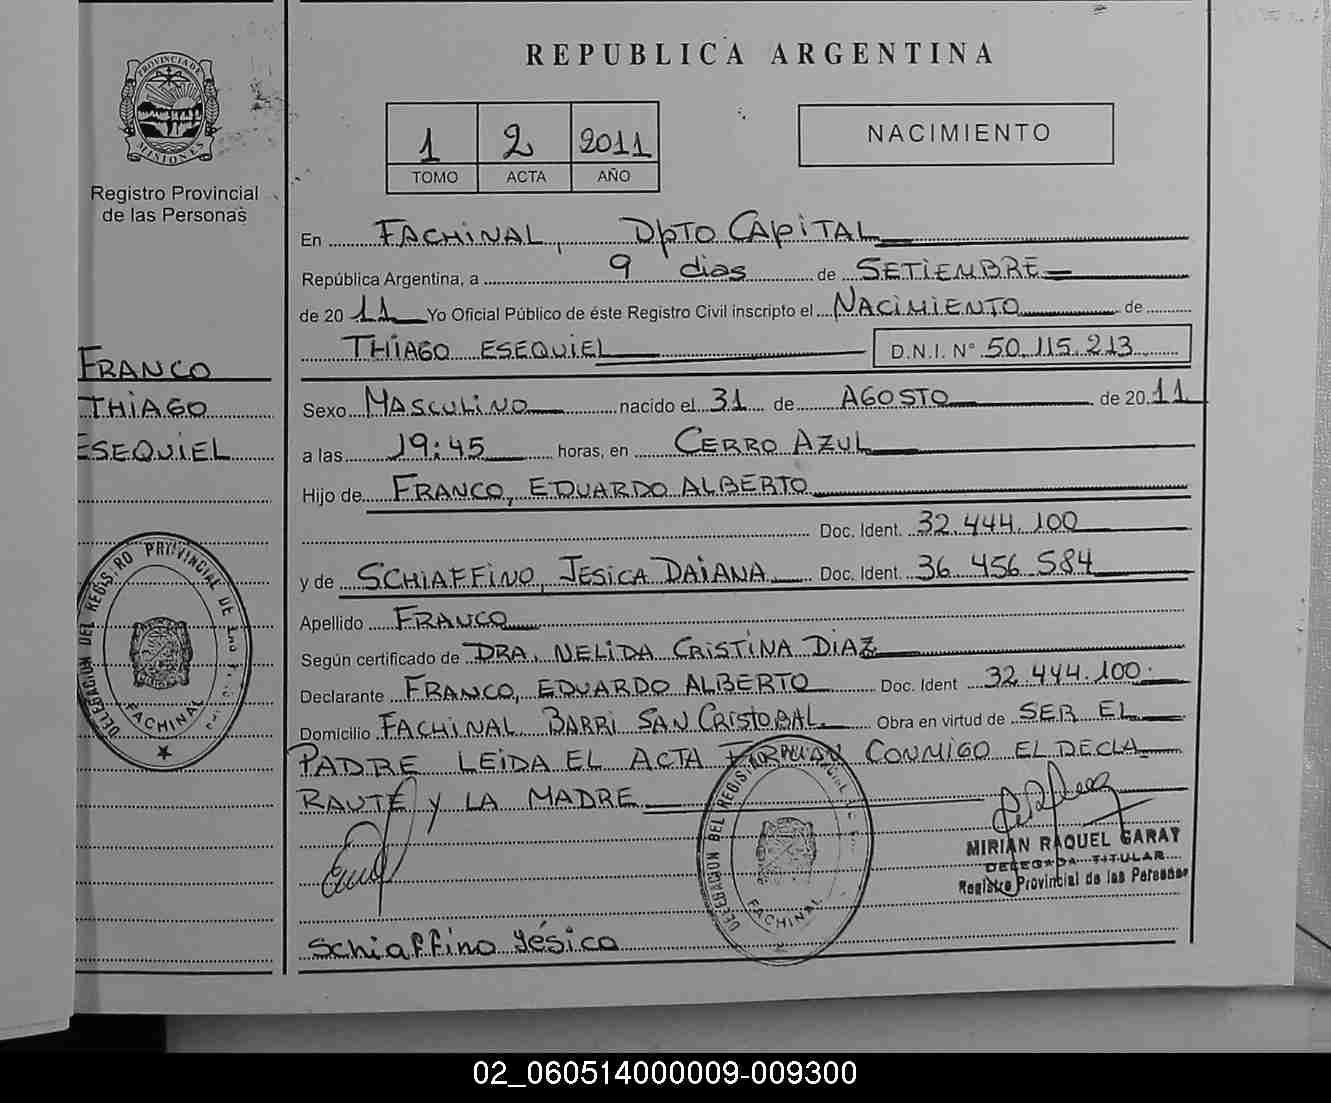 PROVINCIA DE
MISIONES
Registro Provincial
de las Personas
FRANCO
THIAGO
ESEQUIEL
DELEGACION DEL REGISTRO PROVINCIAL DE
FACHINAL
REPUBLICA ARGENTINA
1 2 2011
TOMO ACTA AÑO
NACIMIENTO
En FACHINAL, DPTO CAPITAL
República Argentina, a 9 dias de SETIEMBRE
de 2011 Yo Oficial Público de éste Registro Civil inscripto el NACIMIENTO de
THIAGO ESEQUIEL D.N.I. N° 50.115.213
Sexo MASCULINO nacido el 31 de AGOSTO de 2011
a las 19:45 horas, en CERRO AZUL
Hijo de FRANCO, EDUARDO ALBERTO
Doc. Ident. 32.444.100
y de SCHIAFFINO, JESICA DAIANA Doc. Ident. 36 456 584
Apellido FRANCO
Según certificado de DRA. NELIDA CRISTINA DIAZ
Declarante FRANCO, EDUARDO ALBERTO Doc. Ident 32.444.100.
Domicilio FACHINAL BARRI SAN CRISTOBAL. Obra en virtud de SER EL
PADRE LEIDA EL ACTA FIRMAN CONMIGO EL DECLA
RANTE Y LA MADRE
MIRIAN RAQUEL GARAY
DELEGADA TITULAR
Registro Provincial de las Personas
DELEGACION DEL REGISTRO
FACHINAL
Schiaffino Yésica
02_060514000009-009300